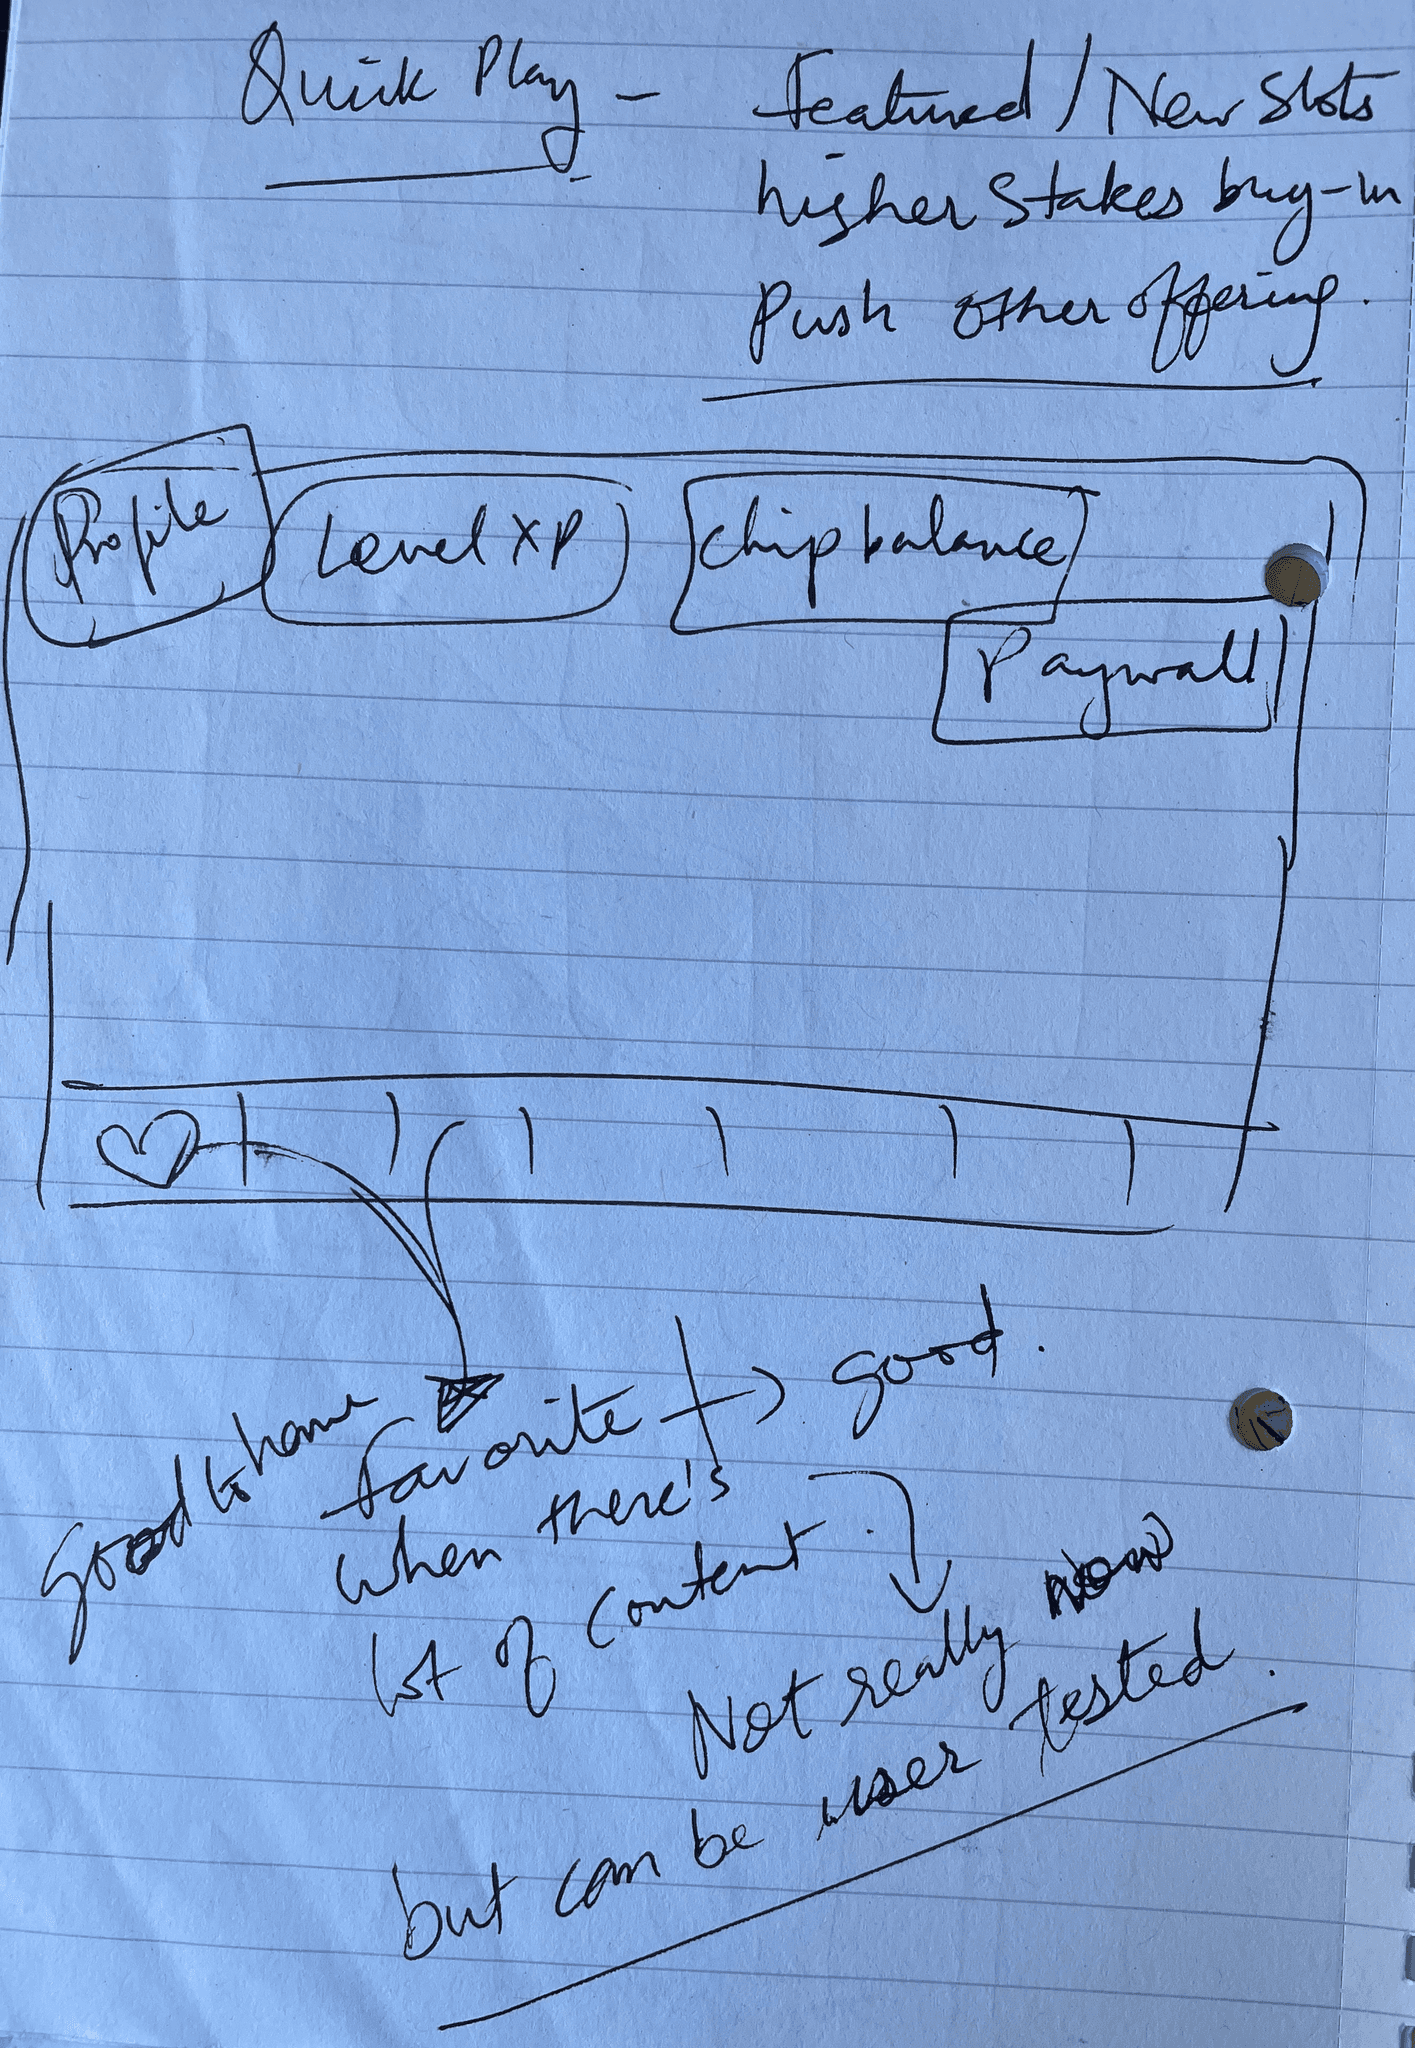 Quick Play - Featured / New Slots
higher stakes buy-in
Push other offering.
Profile
Level XP
Chip balance
Paywall
good to have
favorite → good.
when there's
lot of content.
Not really now
but can be user tested.